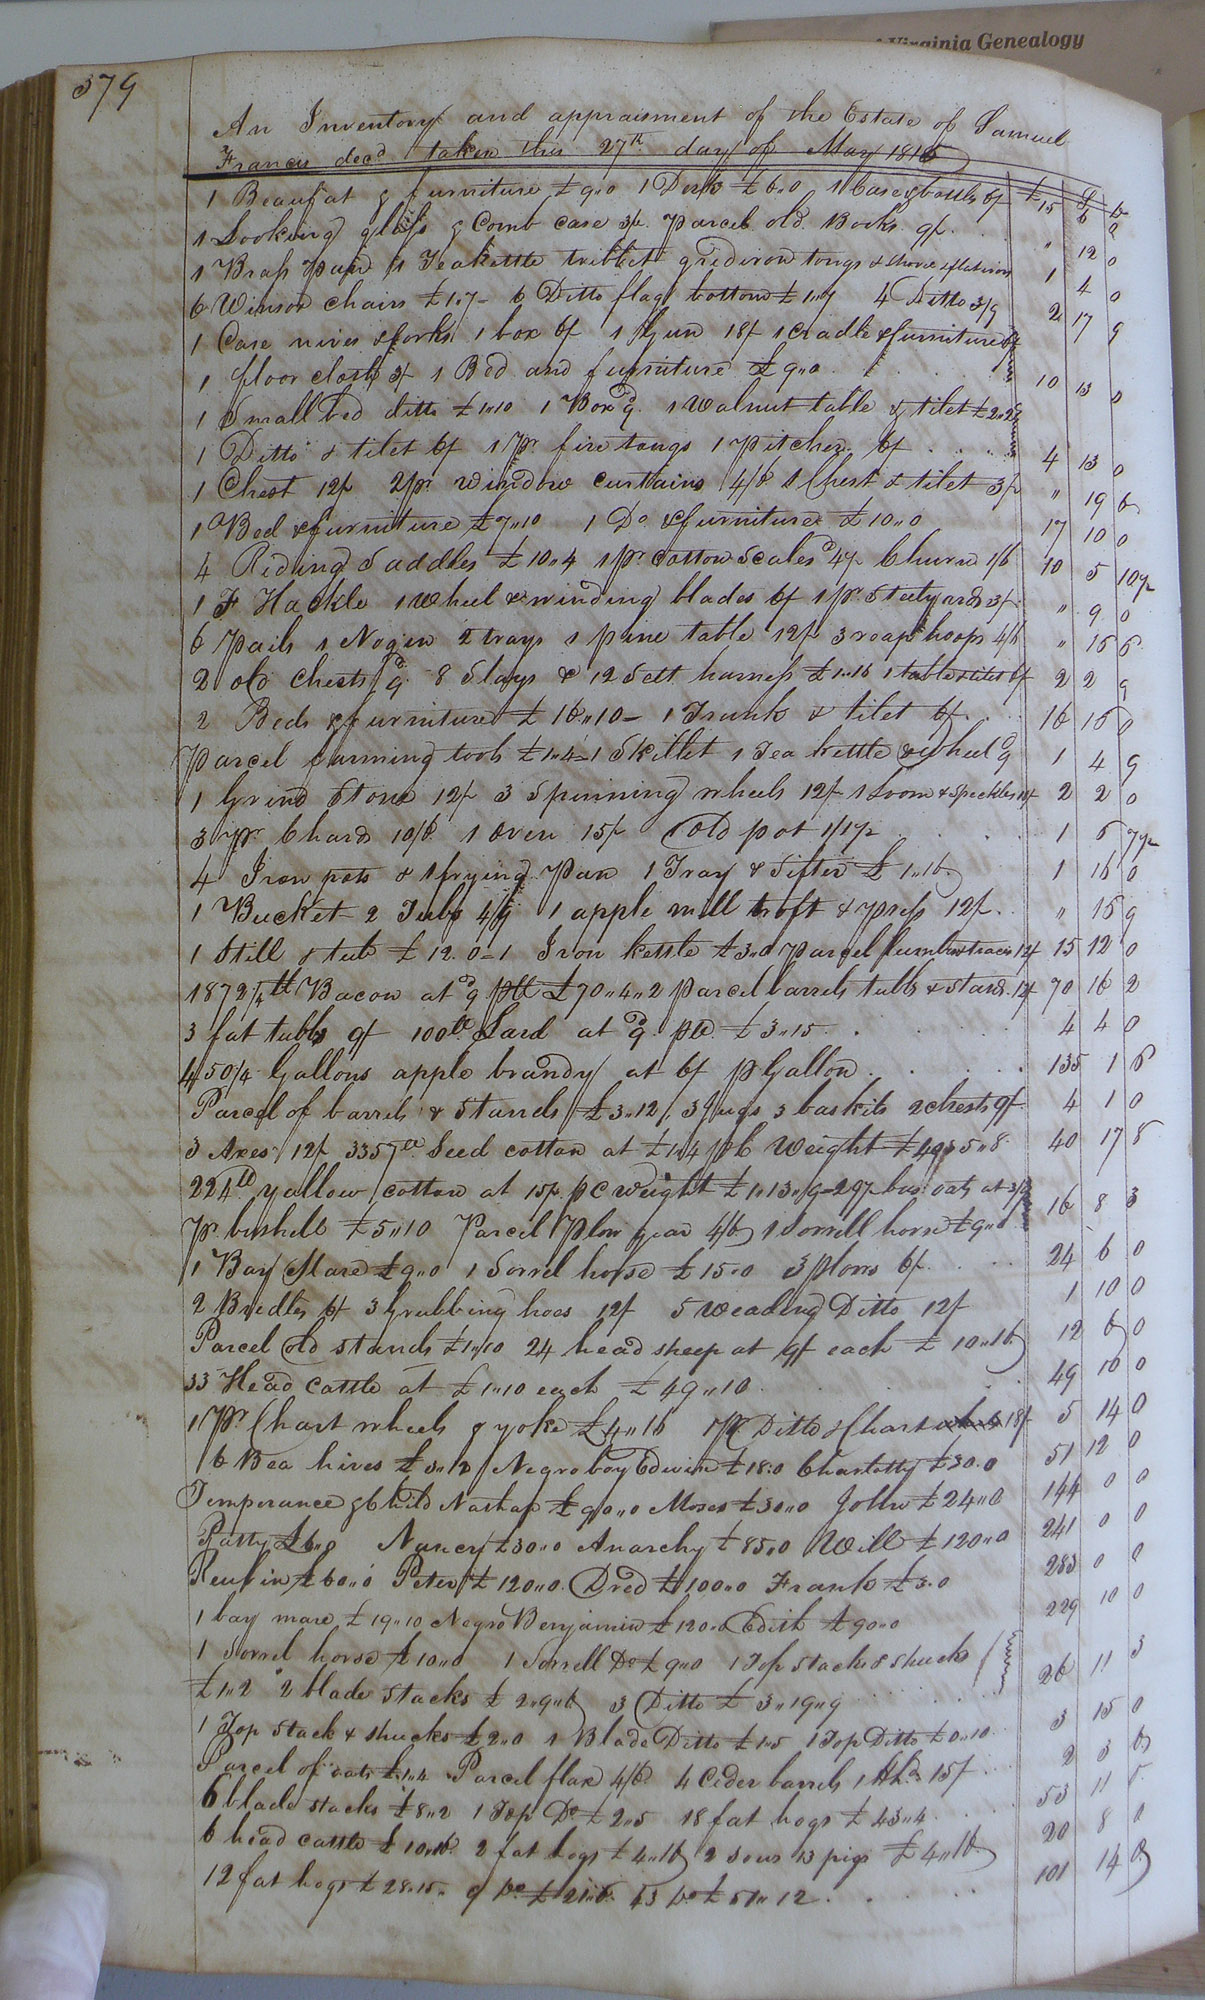 Virginia Genealogy
379
An Inventory and appraisment of the Estate of Samuel
Francis decd taken this 27th day of May 1816
£ S D
1 Beaufat & furniture £9,,0 1 Desk £6,,0 1 Case & bottles 6/ 15 6 0
1 Looking glass & Comb case 3/ parcel old Books 9/. " 12 0
1 Brass pan 1 Teakettle tribbet gridiron tongs & shovel & flatiron 1 4 0
6 Winsor chairs £1,,7- 6 Ditto flag bottom £1,,7 4 Ditto 3/9 2 17 9
1 Case nives & forks 1 box 6/ 1 Gun 18/ 1 Cradle & furniture 6/
1 floor cloth 3/ 1 Bed and furniture £9,,0 10 13 0
1 Small bed ditto £1,,10 1 Box 9d. 1 Walnut table & tilet £2,,2
1 Ditto & tilet 6/ 1 pr fire tongs 1 pitcher 6/ 4 13 0
1 Chest 12/ 2 pr window curtains 4/6 1 Chest & tilet 3/ " 19 6
1 Bed & furniture £7,,10 1 Do & furniture £10,,0 17 10 0
4 Riding Saddles £10,,4 1 pr Cotton Scales 4½ Churn 1/6 10 5 10½
1 F Hackle 1 Wheel & winding blades 6/ 1 pr Steelyards 3/ " 9 0
6 Pails 1 Nogin 2 trays 1 pine table 12/ 3 reap hoops 4/6 " 16 6
2 old Chests 9d. 8 Slays & 12 Sett harness £1,,16 1 table & tilet 6/ 2 2 9
2 Beds & furniture £16,,10- 1 Trunk & tilet 6/ 16 16 0
Parcel farming tools £1,,4- 1 Skillet 1 Tea kettle & wheel 9 1 4 9
1 Grind Stone 12/ 3 Spinning wheels 12/ 1 Loom & Speckles 18/ 2 2 0
3 pr Chards 10/6 1 Oven 15/ Old pot 1/1½ 1 6 7½
4 Iron pots & 1 frying Pan 1 Tray & Sifter £1,,16 1 16 0
1 Bucket 2 Tubs 4/9 1 apple mill troft & press 12/. " 16 9
1 Still & tub £12.0-1 Iron kettle £3,,0 Parcel lumber & traces 12/ 15 12 0
1872¼ lb Bacon at 9d plb £70,,4,,2 parcel barrels tubbs & stands 12/ 70 16 2
3 fat tubbs 9/ 100lb. Lard at 9d. plb £3,,15 4 4 0
450¼ Gallons apple brandy at 6/ p Gallon 135 1 6
Parcel of barrels & Stands £3,,12, 3 Jugs 3 baskits 2 chests 9/ 4 1 0
3 Axes 12/ 3357lb Seed cotton at £1,,4 p C Weight £40,,5,,8 40 17 8
224lb yallow cotton at 15/. p C weight £1,,13,,9-29½ bus: oats at 3/9
pr bushell £5,,10 Parcel Plow gear 4/6 1 Sorrell horse £9,,0 16 8 3
1 Bay Mare £9,,0 1 Sorrel horse £15,,0 3 plows 6/. 24 6 0
2 Bridles 6/ 3 Grubbing hoes 12/ 5 Weading Ditto 12/ 1 10 0
Parcel Old stands £1,,10 24 head sheep at 9/ each £10,,16 12 6 0
33 Head Cattle at £1,,10 each £49,,10 49 10 0
1 pr Chart wheels & yoke £4,,16 1 pr Ditto & Chart 18/ 5 14 0
6 Bea hives £3,,12 Negro boy Edwin £18:0 Charlotty £30.0 51 12 0
Temperance & Child Nathan £90,,0 Moses £30,,0 John £24,,0 144 0 0
Patty £6,,0 Nancy £30,,0 Anarchy £85,,0 Will £120,,0 241 0 0
Reufin £60,,0 Peter £120,,0. Dred £100,,0 Frank £3.0 283 0 0
1 bay mare £19,,10 Negro Benjamin £120,,0 Edith £90,,0 229 10 0
1 Sorrel horse £10,,0 1 Sorrell Do £9,,0 1 Top stack & shucks
£1,,2 2 blade stacks £2,,9,,6 3 Ditto £3,,19,,9 26 11 3
1 Top Stack & Shucks £2,,0 1 Blade Ditto £1,,5 1 Top Ditto £0,,10 3 15 0
Parcel of oats £1,,4 Parcel flax 4/6 4 Ceder barrels 1 hhd 15/ 2 3 6
6 blade stacks £8,,2 1 Top Do £2,,5 18 fat hogs £43,,4 53 11 0
6 head cattle £10,,16 2 fat hogs £4,,16 2 sows 13 pigs £4,,16 20 8 0
12 fat hogs £28,,16. 9 Do £21,,6 43 Do £51,,12 101 14 0